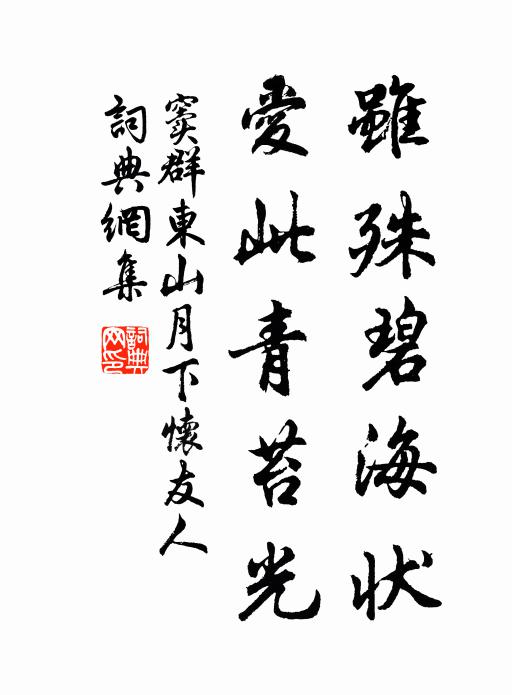 雖殊碧海狀
愛此青苔光
竇群東山月下懷友人
詞典網集
詞典网印